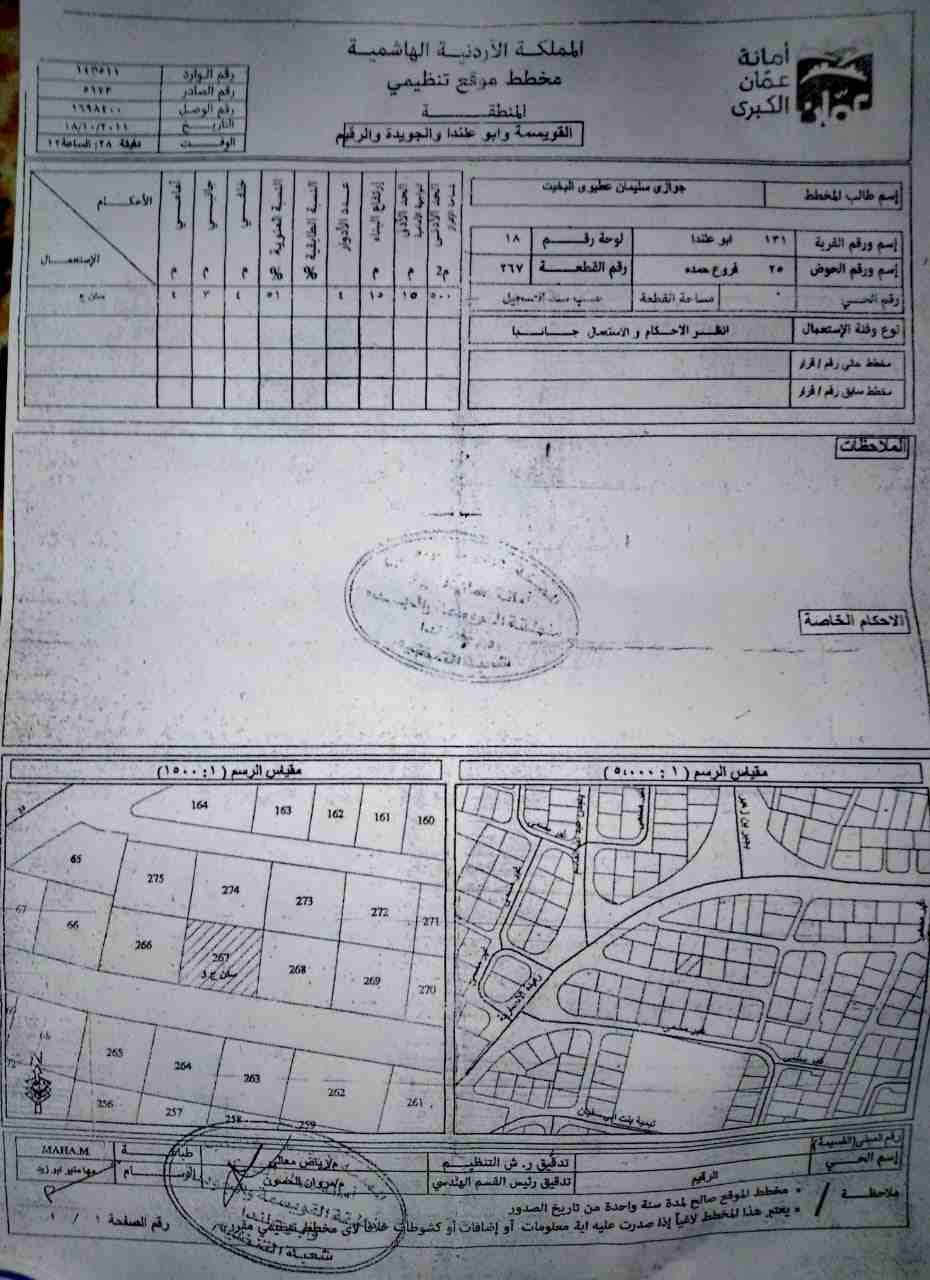 المملكة الأردنية الهاشمية
مخطط موقع تنظيمي
المنطقـــــة
القويسمة وابو علندا والجويدة والرقيم
أمانة
عمّان
الكبرى
رقم الوارد
رقم الصادر ٥١٧٢
رقم الوصل ١٦٩٨٢٠٠
التاريخ ١٨/١٠/٢٠١١
الوقت دقيقة ٢٨ :الساعة ١٢
إسم طالب المخطط جوازي سليمان عطيوي البخيت
إسم ورقم القرية ١٣١ ابو علندا لوحة رقم ١٨
إسم ورقم الحوض ٢٥ فروع حمده رقم القطعة ٢٦٧
رقم الحي ٠ مساحة القطعة حسب سند التسجيل
نوع وفئة الإستعمال انظر الاحكام و الاستعمال جانبا
مخطط حالي رقم / قرار
مخطط سابق رقم / قرار
الأحكام
الإستعمال
أمامي م
جانبي م
خلفي م
النسبة المئوية %
النسبة الطابقية %
عدد الأدوار
إرتفاع البناء م
الحد الأدنى م
الحد الأدنى م2
سكن ج ٤ ٣ ٤ ٥١ ٤ ١٥ ١٥ ٥٠٠
الملاحظات
الاحكام الخاصة
مقياس الرسم ( ١ : ٥٠٠٠ )
مقياس الرسم ( ١ : ١٥٠٠ )
164 163 162 161 160
65 275 274 273 272 271
67 66 266 267 268 269 270
سكن ج
265 264 263 262 261
256 257 258 259
غير مسمى
رقم المبنى (القسيمة)
إسم الحي الرقيم
تدقيق ر. ش التنظيم م/رياض معالي
تدقيق رئيس القسم الهندسي م/مروان
طباعة MAHA.M
الرسام مها منير ابو زيد
ملاحظة
* مخطط الموقع صالح لمدة سنة واحدة من تاريخ الصدور
* يعتبر هذا المخطط لاغياً إذا صدرت عليه اية معلومات أو إضافات أو كشوطات خلافاً لأي مخطط تنظيمي مقرر
رقم الصفحة ١ / ١